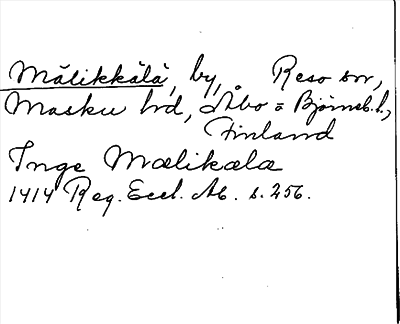 Mälikkälä, by, Reso sn,
Masku hd, Åbo = Björneb. l.,
Finland
Inge Mælikælæ
1414 Reg. Eccl. Ab. s. 256.